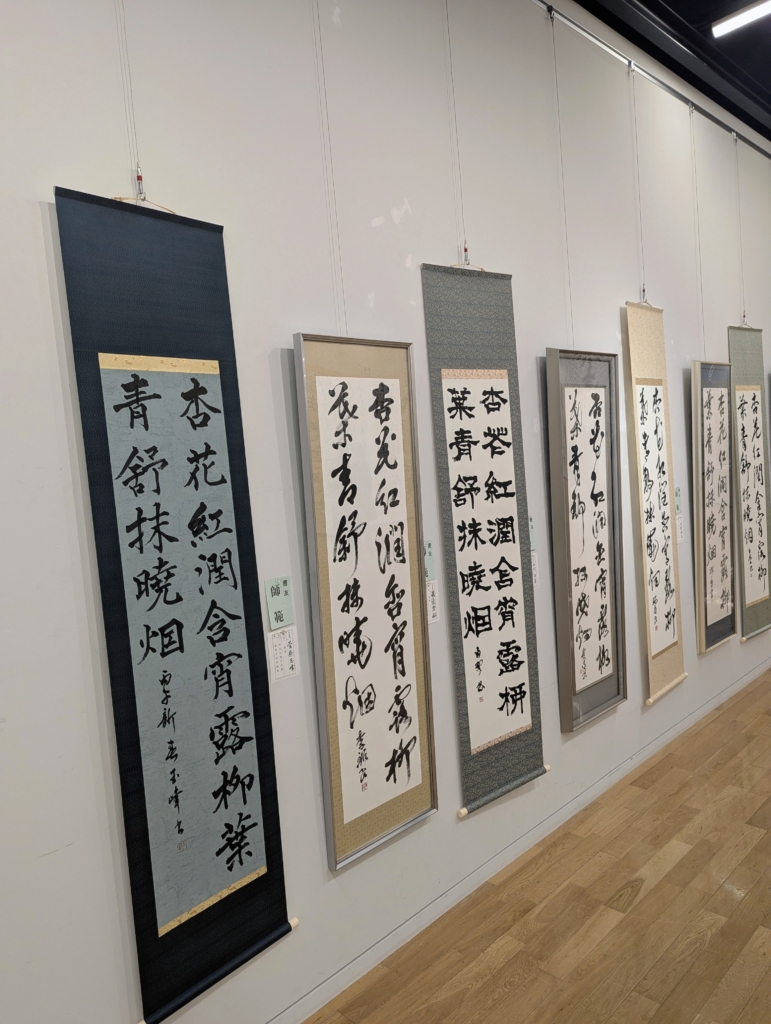 杏花紅潤含宵露柳葉
青舒抹曉烟
丙午新春玉峰書
師範
菅原玉峰
杏花紅潤含宵露柳
葉青舒抹曉烟
杏花紅潤含宵露柳
葉青舒抹曉烟
杏花紅潤含宵露柳
葉青舒抹曉烟
杏花紅潤含宵露柳
葉青舒抹曉烟
杏花紅潤含宵露柳
葉青舒抹曉烟
杏花紅潤含宵露柳
葉青舒抹曉烟